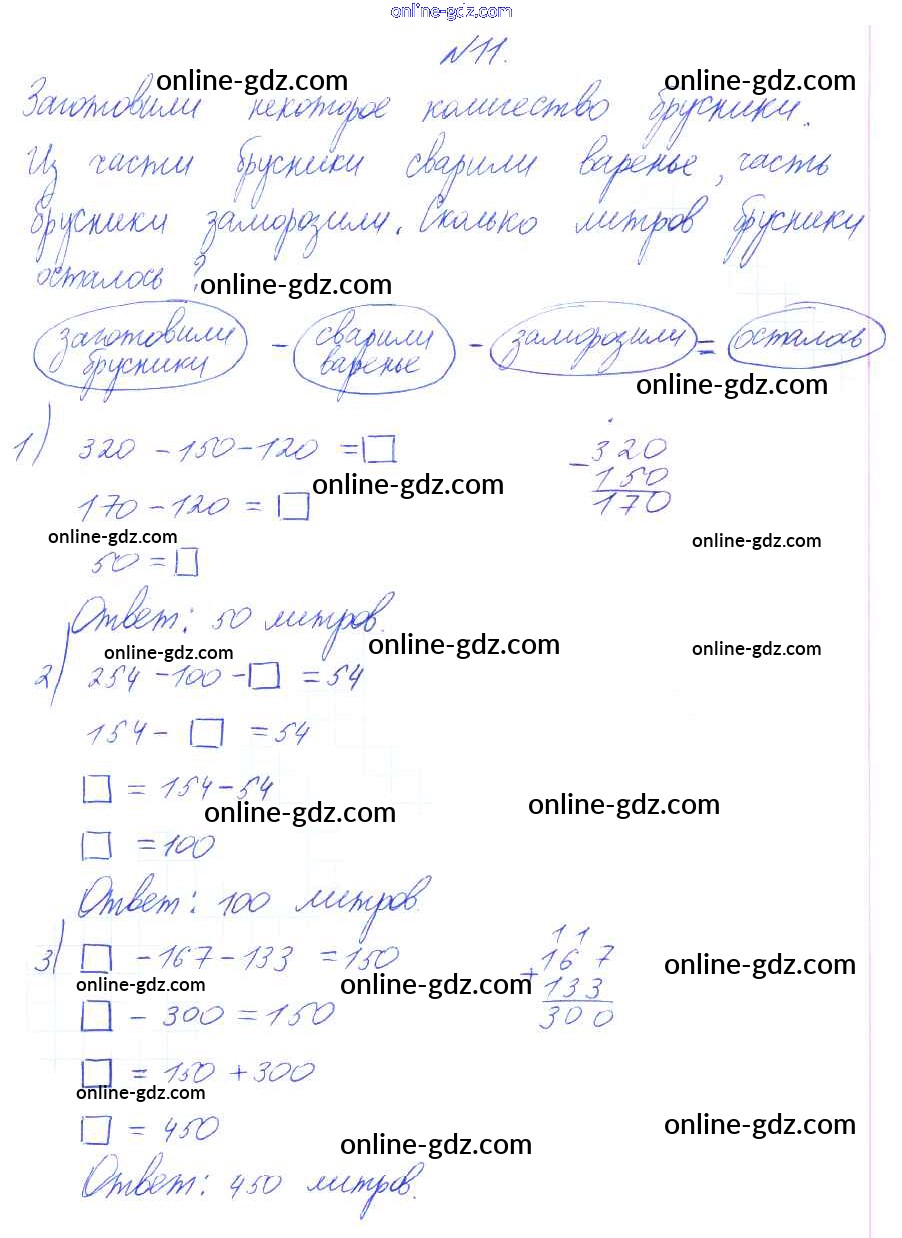 online-gdz.com
№11.
online-gdz.com online-gdz.com
Заготовили некоторое количество брусники.
Из части брусники сварили варенье, часть
брусники заморозили. Сколько литров брусники
осталось?
online-gdz.com
заготовили брусники - сварили варенье - заморозили = осталось
online-gdz.com
1) 320 - 150 - 120 = □
320
- 150
170
online-gdz.com
170 - 120 = □
online-gdz.com online-gdz.com
50 = □
Ответ: 50 литров.
online-gdz.com online-gdz.com online-gdz.com
2) 254 - 100 - □ = 54
154 - □ = 54
□ = 154 - 54
online-gdz.com online-gdz.com
□ = 100
Ответ: 100 литров.
3) □ - 167 - 133 = 150
11
167
+ 133
300
online-gdz.com online-gdz.com online-gdz.com
□ - 300 = 150
□ = 150 + 300
online-gdz.com
□ = 450
online-gdz.com online-gdz.com
Ответ: 450 литров.